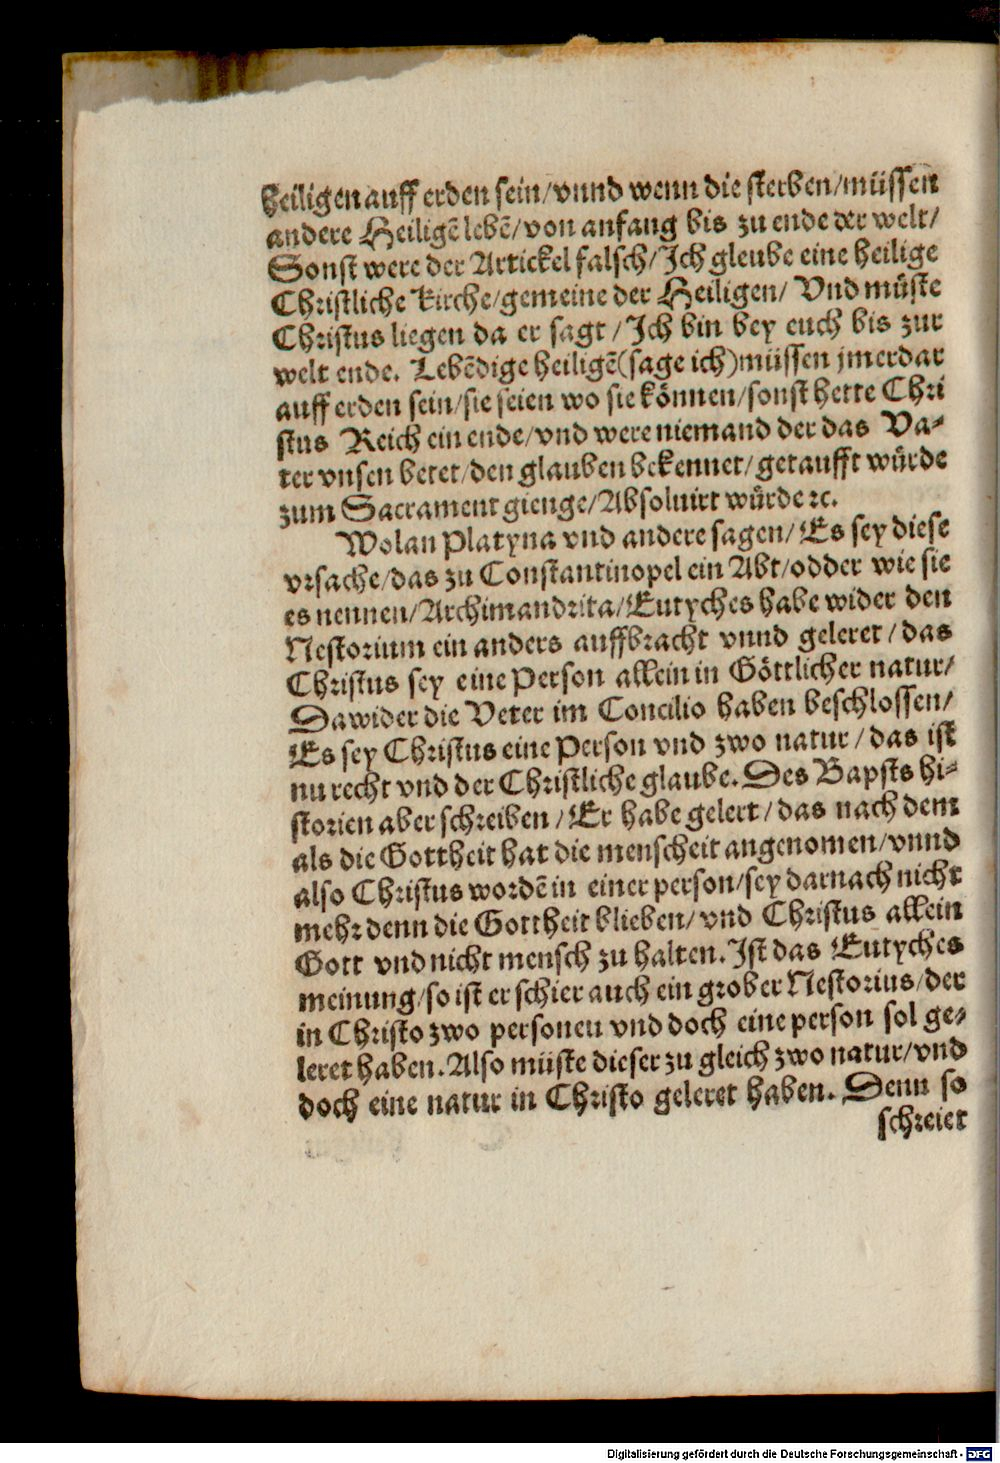 Heiligen auff erden sein/vnnd wenn die sterben/müssen
andere Heiligẽ lebẽ/von anfang bis zu ende der welt/
Sonst were der Artickel falsch/Ich gleube eine heilige
Christliche kirche/gemeine der Heiligen/ Vnd müste
Christus liegen da er sagt/Ich bin bey euch bis zur
welt ende. Lebẽdige heiligẽ(sage ich)müssen jmerdar
auff erden sein/sie seien wo sie können/sonst hette Chri
stus Reich ein ende/vnd were niemand der das Va-
ter vnsen betet/den glauben bekennet/getaufft würde
zum Sacrament gienge/Absoluirt würde ꝛc.
Wolan Platyna vnd andere sagen/Es sey diese
vrsache/das zu Constantinopel ein Abt/odder wie sie
es nennen/Archimandrita/Eutyches habe wider den
Nestorium ein anders auffbracht vnnd geleret/das
Christus sey eine Person allein in Göttlicher natur/
Dawider die Veter im Concilio haben beschlossen/
Es sey Christus eine Person vnd zwo natur/das ist
nu recht vnd der Christliche glaube. Des Bapsts hi-
storien aber schreiben/Er habe gelert/das nach dem
als die Gottheit hat die menscheit angenomen/vnnd
also Christus wordẽ in einer person/sey darnach nicht
mehr denn die Gottheit blieben/vnd Christus allein
Gott vnd nicht mensch zu halten. Ist das Eutyches
meinung/so ist er schier auch ein grober Nestorius/der
in Christo zwo personen vnd doch eine person sol ge-
leret haben. Also müste dieser zu gleich zwo natur/vnd
doch eine natur in Christo geleret haben. Denn so
schreiet
Digitalisierung gefördert durch die Deutsche Forschungsgemeinschaft - DFG